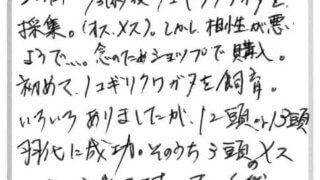 ノコギリクワガタを
採集。(オス、メス)。しかし相性が悪い
ようで…。念のためショップで購入。
初めて、ノコギリクワガタを飼育。
いろいろありましたが、12頭 13頭
羽化に成功。そのうち3頭のメス